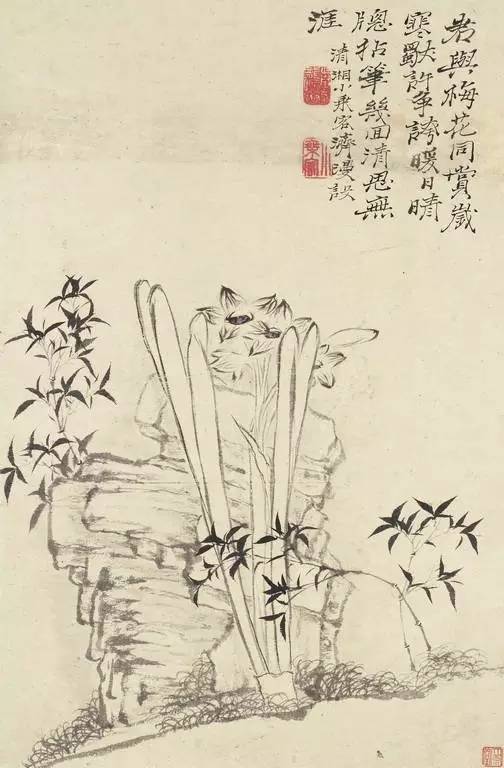 君與梅花同賞歲
寒獸許争誇暖日晴
窻拈筆幾回清思無
涯
清湘小乘客濟漫設